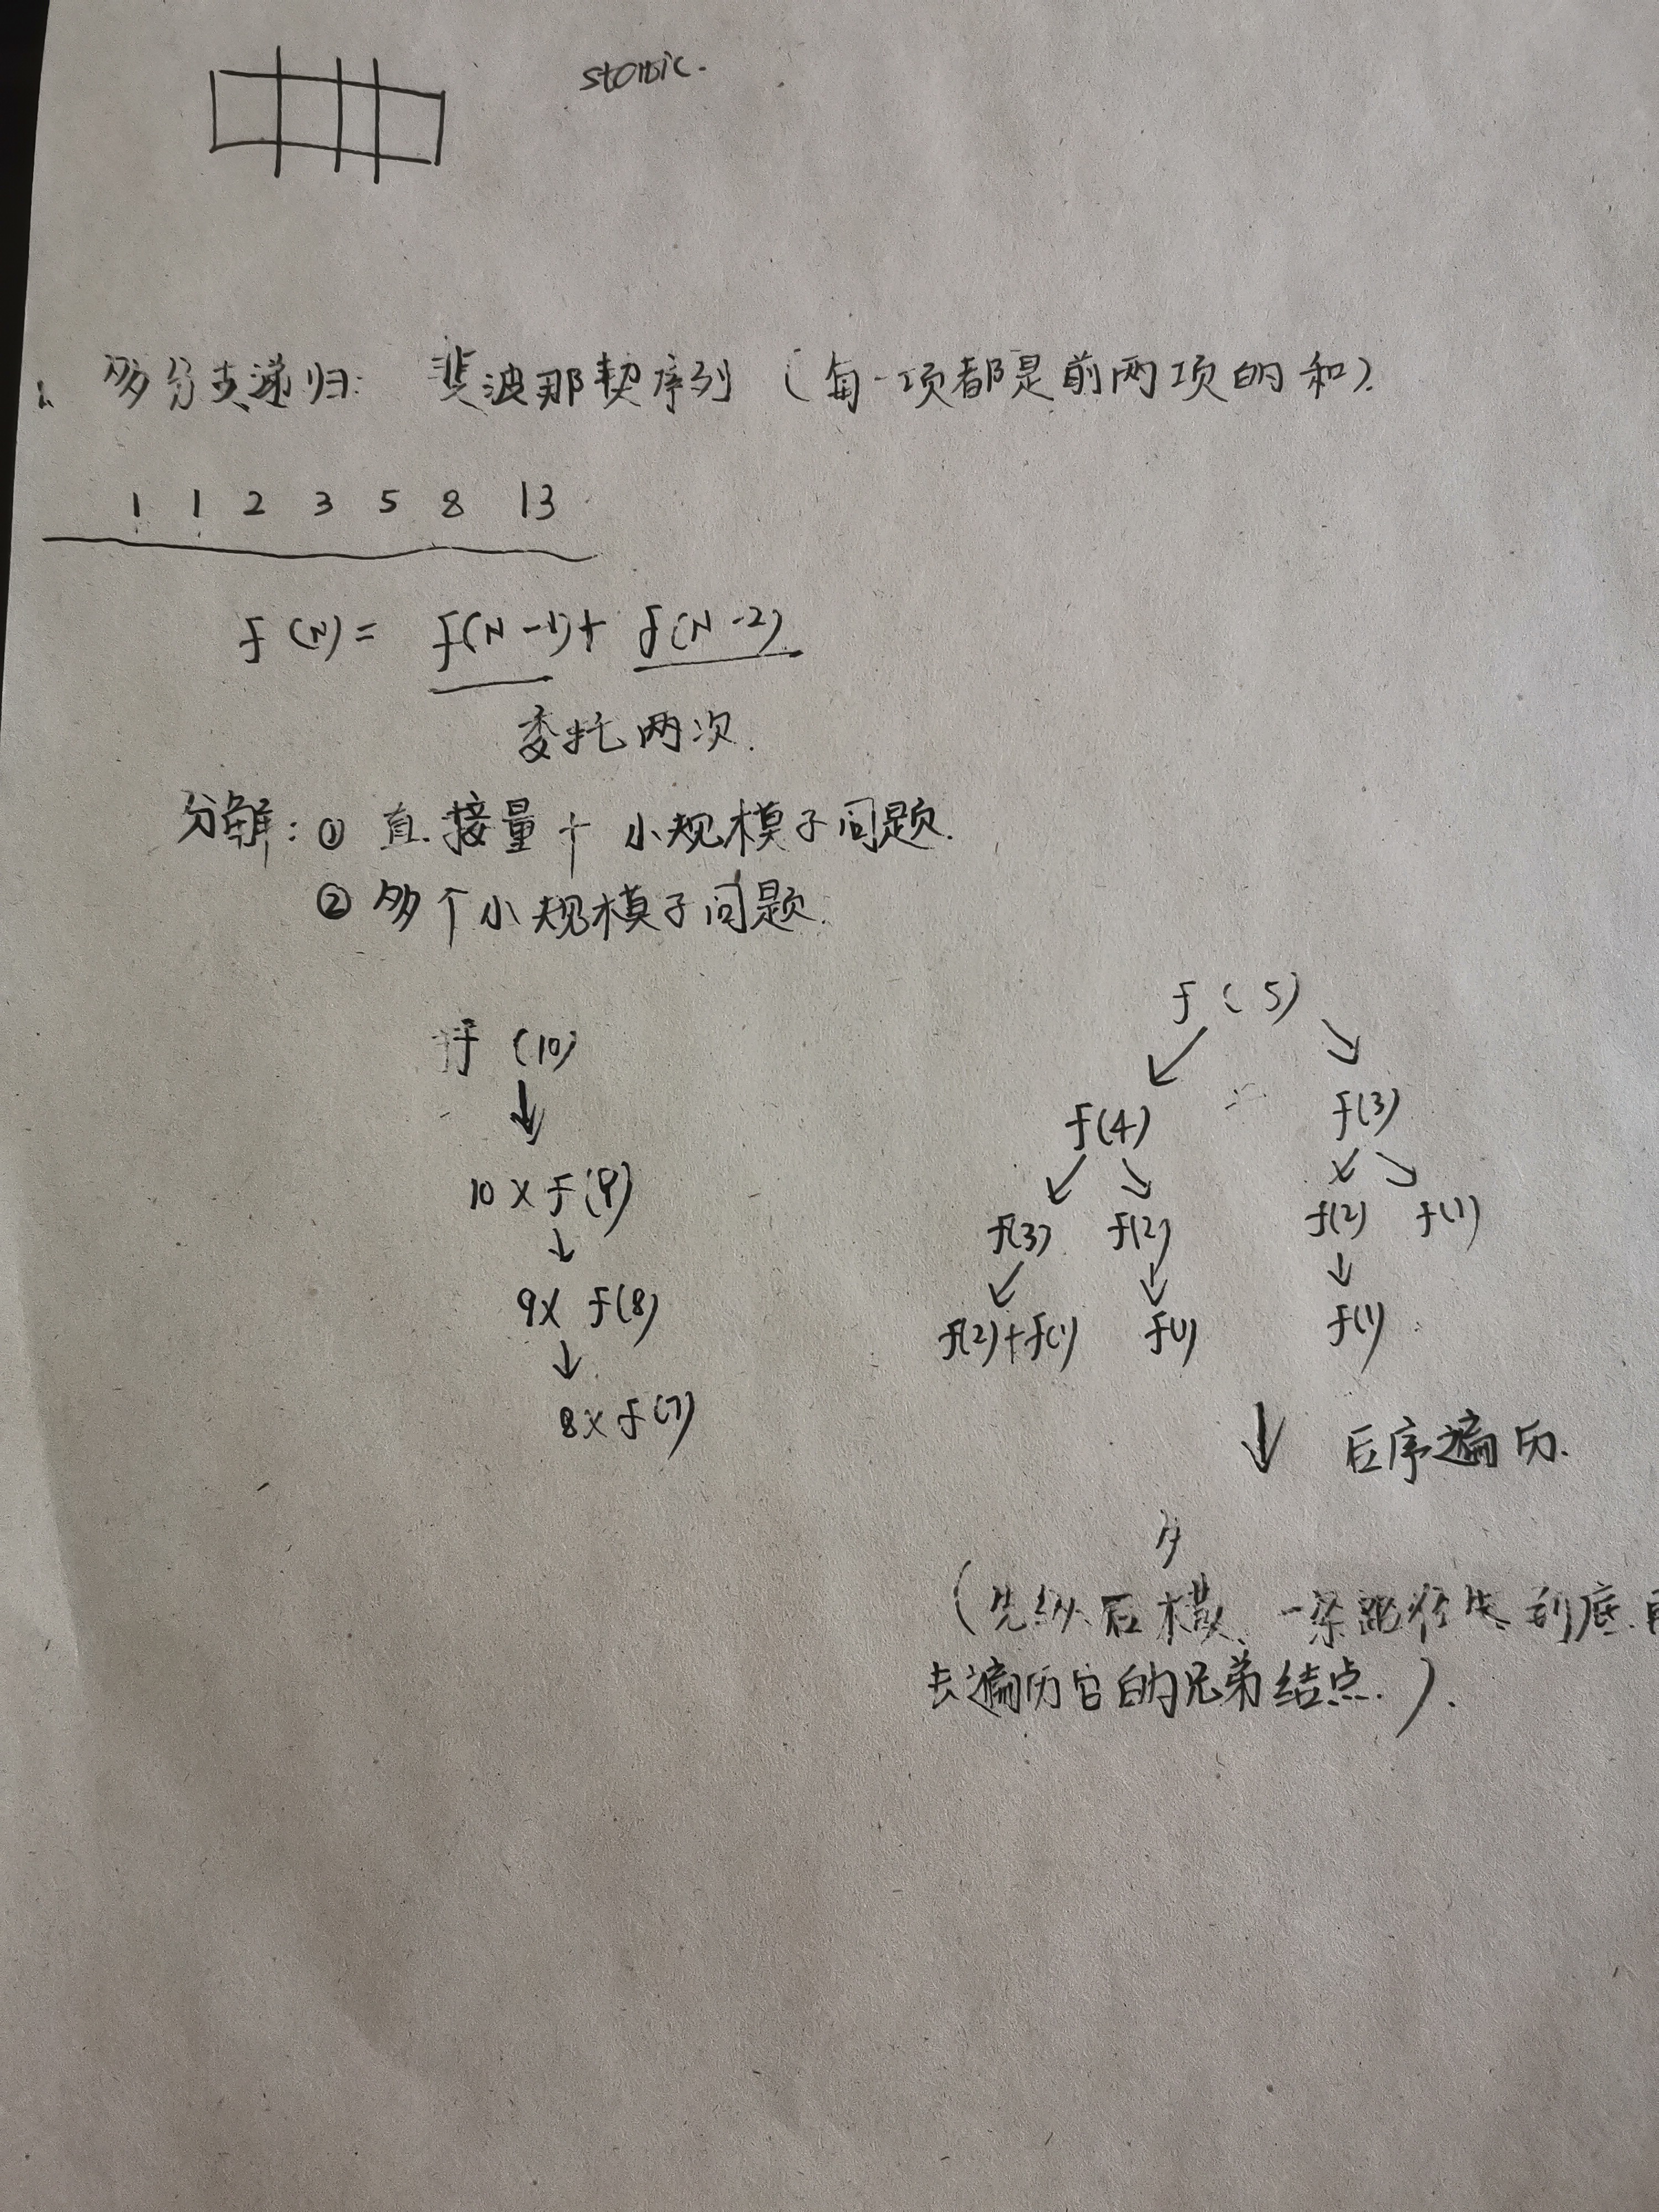 多分支递归: 斐波那契序列 (每一项都是前两项的和).
1 1 2 3 5 8 13
f(N)= f(N-1)+ f(N-2)
委托两次.
分解: ① 直接量 + 小规模子问题.
② 多个小规模子问题.
f(10)
10 x f(9)
9x f(8)
8x f(7)
f(5)
f(4) f(3)
f(3) f(2) f(2) f(1)
f(2)+f(1) f(1) f(1)
后序遍历.
(先纵后横, 一条路径先到底.再
去遍历它的兄弟结点.).